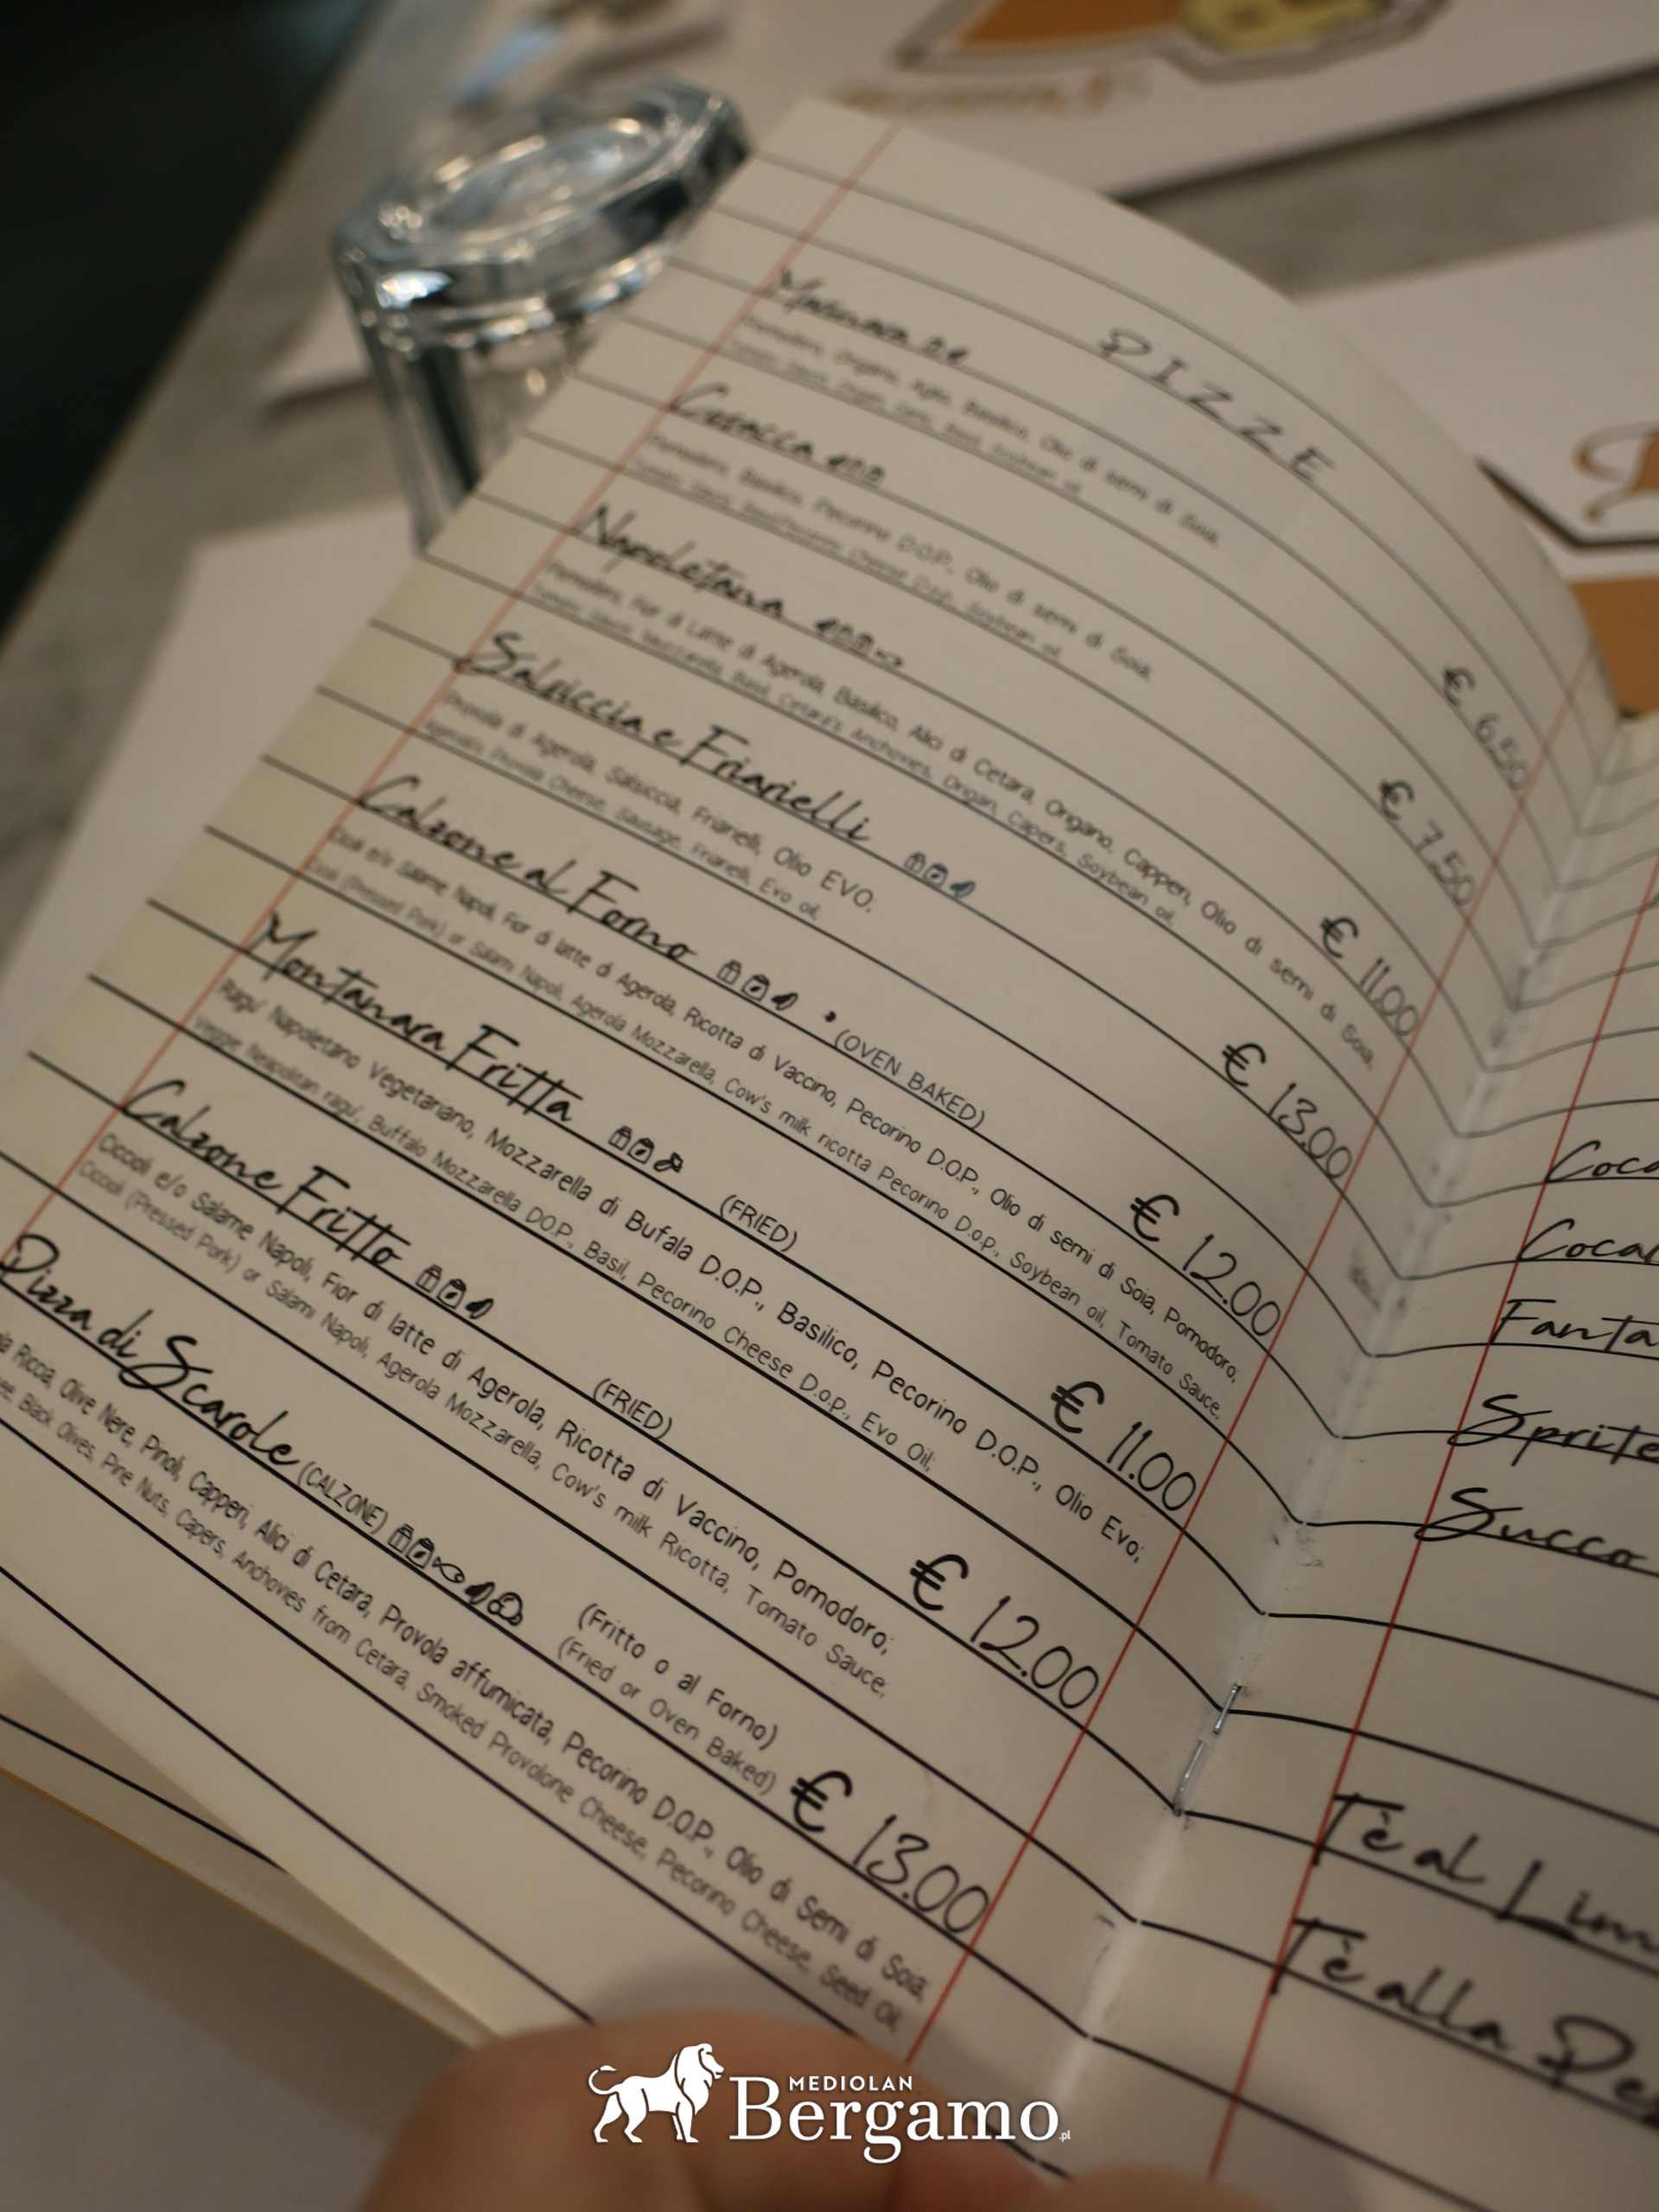 PIZZE
Marinara
Pomodoro, Origano, Aglio, Basilico, Olio di semi di Soia.
€ 6.50
Cosacca
Pomodoro, Basilico, Pecorino D.O.P., Olio di semi di Soia.
Cheese D.o.p., Soybean oil.
€ 7.50
Napoletana
Pomodoro, Fior di Latte di Agerola, Basilico, Alici di Cetara, Origano, Capperi, Olio di semi di Soia.
Tomato Sauce, Mozzarella, Basil, Cetara's Anchovies, Origan, Capers, Soybean oil.
€ 11.00
Salsiccia e Friarielli
Provola di Agerola, Salsiccia, Friarielli, Olio EVO.
Agerola's Provola Cheese, Sausage, Friarielli, Evo oil.
€ 13.00
Calzone al Forno (OVEN BAKED)
Cicoli e/o Salame Napoli, Fior di latte di Agerola, Ricotta di Vaccino, Pecorino D.O.P., Olio di semi di Soia, Pomodoro;
Cicoli (Pressed Pork) or Salami Napoli, Agerola Mozzarella, Cow's milk ricotta Pecorino D.o.p., Soybean oil, Tomato Sauce.
€ 12.00
Montanara Fritta (FRIED)
Ragu' Napoletano Vegetariano, Mozzarella di Bufala D.O.P., Basilico, Pecorino D.O.P., Olio Evo;
Veggie Neapolitan ragu', Buffalo Mozzarella D.O.P., Basil, Pecorino Cheese D.o.p., Evo Oil;
€ 11.00
Calzone Fritto (FRIED)
Ciccioli e/o Salame Napoli, Fior di latte di Agerola, Ricotta di Vaccino, Pomodoro;
Ciccioli (Pressed Pork) or Salami Napoli, Agerola Mozzarella, Cow's milk Ricotta, Tomato Sauce.
€ 12.00
Pizza di Scarole (CALZONE) (Fritto o al Forno)
(Fried or Oven Baked)
€ 13.00
Riccia, Olive Nere, Pinoli, Capperi, Alici di Cetara, Provola affumicata, Pecorino D.O.P., Olio di Semi di Soia;
Black Olives, Pine Nuts, Capers, Anchovies from Cetara, Smoked Provolone Cheese, Pecorino Cheese, Seed Oil.
Coca
Fanta
Sprite
Succo
Tè al Lim
Tè alla Pe
MEDIOLAN
Bergamo.pl